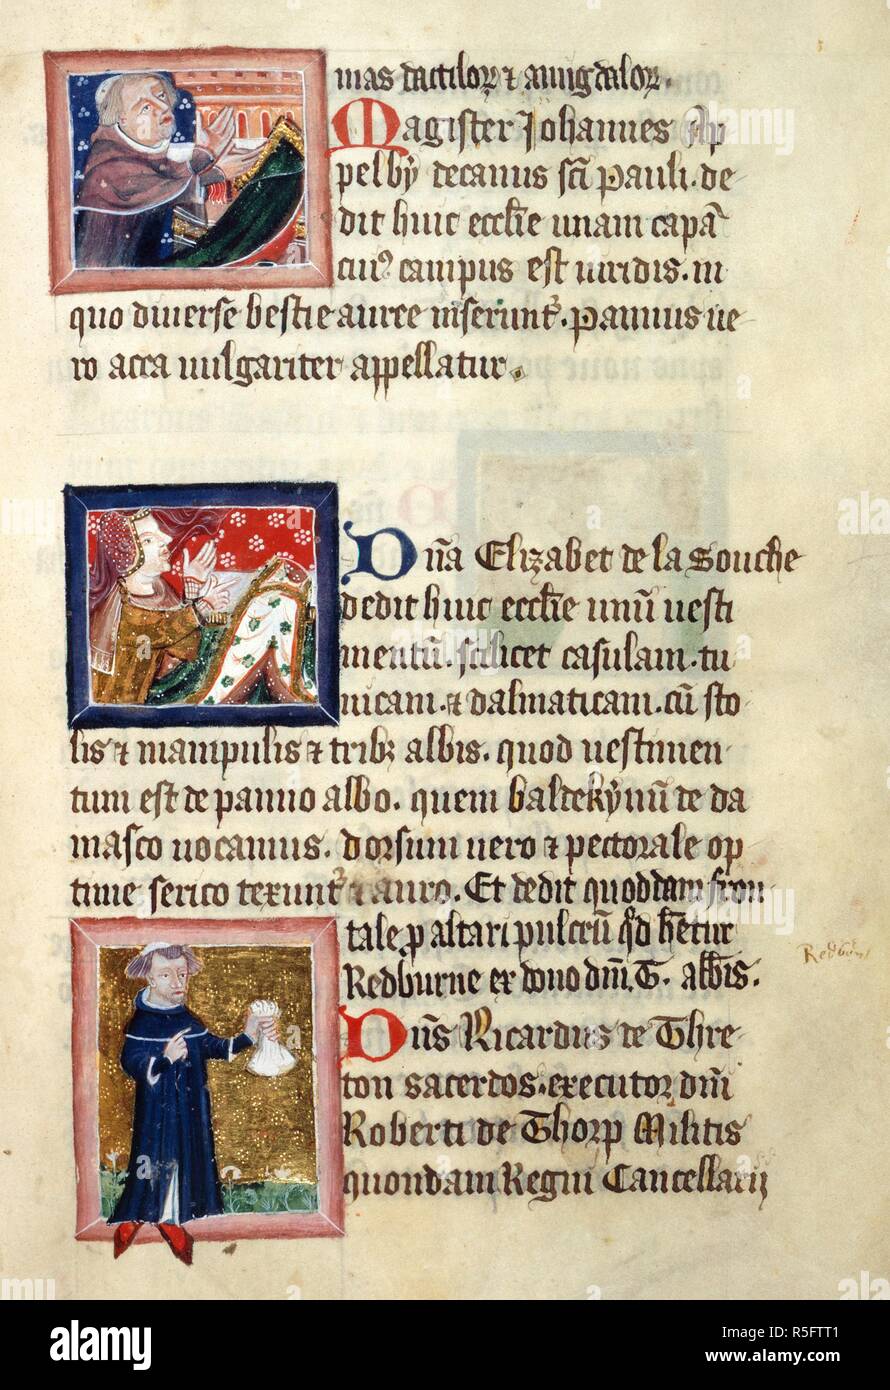 mas dactilorꝝ ⁊ amigdalorꝝ.
Magister Johannes Ap
pelby decanus sc̄i Pauli. de
dit huic eccl̄ie unam capā
cuiꝰ campus est uiridis. in
quo diuerse bestie auree inserunt᷑. Pannus ue
ro acca uulgariter appellatur.
Dn̄a Elizabet de la Souche
dedit huic eccl̄ie unū uesti
mentū. scilicet casulam. tu
nicam. ⁊ dalmaticam. cū sto
lis ⁊ manipulis ⁊ tribꝫ albis. quod uestimen
tum est de panno albo. quem baldekynū de da
masco uocamus. dorsum uero ⁊ pectorale op
time serico texunt᷑ ⁊ auro. Et dedit quoddam fron
tale ꝓ altari pulcrū qd̄ hētur
Redburne ex dono dn̄i. T. abbīs.
Redburn
Dn̄s Ricardus de Thre
ton sacerdos. executor dn̄i
Roberti de Thorp Militis
quondam Regni Cancellarij
alamy
Image ID: R5FTT1
www.alamy.com